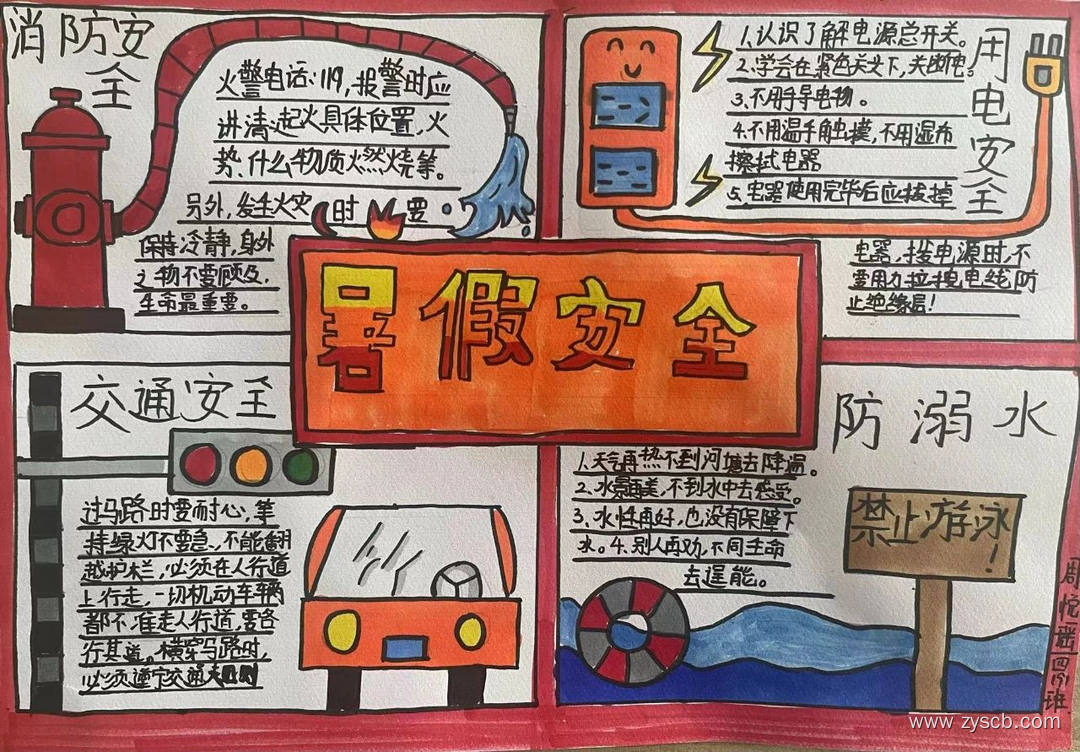 消防安
全
火警电话:119,报警时应
讲清起火具体位置,火
势、什么物质火燃烧等。
另外,发生火灾时要
保持冷静,身外
之物不要顾及,
生命最重要。
1.认识了解电源总开关。
2.学会在紧急关头下,关断电。
3.不用手导电物。
4.不用温手触摸,不用湿布
擦拭电器
5.电器使用完毕后应拔掉
电器,拔电源时,不
要用力拉拽电线,防
止绝缘层!
用电安全
暑假安全
交通安全
过马路时要耐心,等
待绿灯不要急、不能翻
越护栏,必须在人行道
上行走,一切机动车辆
都不准走人行道,要各
行其道。横穿马路时,
必须遵守交通
防溺水
1.天气再热不到河塘去降温。
2.水景再美,不到水中去感受。
3、水性再好,也没有保障下
水。4.别人再劝,不同生命
去逞能。
禁止游泳
!
周悦
班
www.zyscb.com